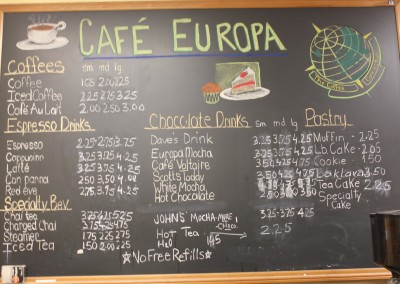 CAFÉ EUROPA
Coffees sm md lg
Coffee 2.00 2.25
Iced Coffee 2.25 2.75 3.25
Café Au Lait 2.00 2.50 3.00
Espresso Drinks
Espresso 2.25 2.75 3.75
Capuccino 3.25 3.75 4.25
Latté 3.25 3.75 4.25
Con panna 2.50 3.50 4.00
Red eye 2.75 3.75 4.25
Specialty Bev.
Chai tea 3.25 4.25 5.25
Charged Chai
Steamer 1.75 2.25 2.75
Iced Tea 1.50 2.00 2.25
Chocolate Drinks sm md lg
Dave's Drink 3.25 3.75 4.25
Europa Mocha 3.25 3.75 4.25
Café Voltaire 3.50 4.25 4.75
Scott's Toddy 3.50 4.25 4.75
White Mocha
Hot Chocolate 2.50 3.50
JOHNS' MOCHA-MORE CHOCO. 3.25 3.75 4.25
HOT Tea 2.25
H2O 1.45
Pastry
Muffin - 2.25
Lb Cake - 2.05
Cookie - 1.50
Baklava 3.50
Tea Cake 2.85
Specialty
Cake
☆No Free Refills☆